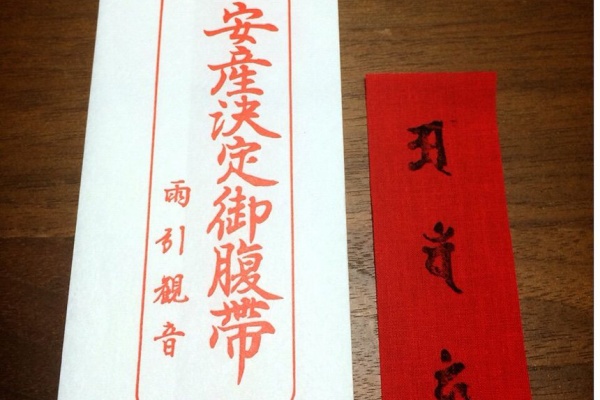 安産決定御腹帯
雨引観音